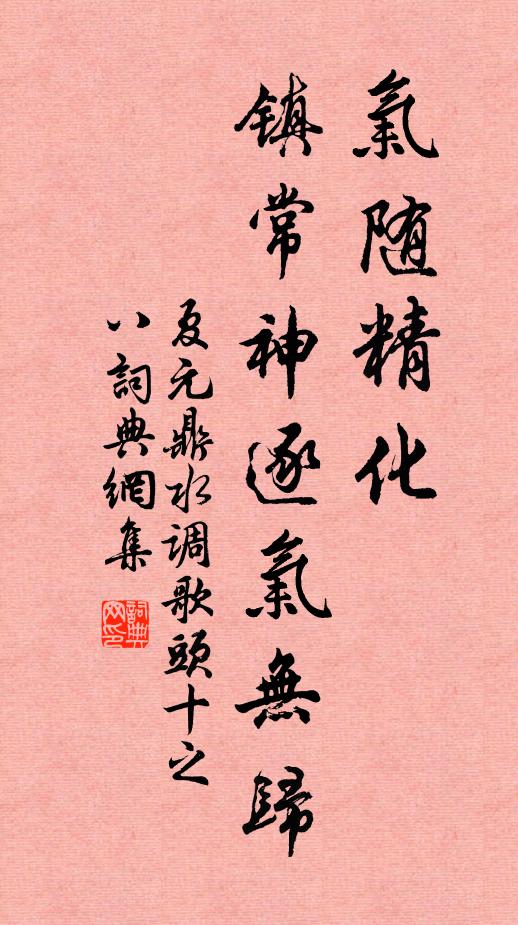 氣随精化
镇常神逐氣無歸
夏元鼎水调歌頭十之
八詞典網集
詞典網印